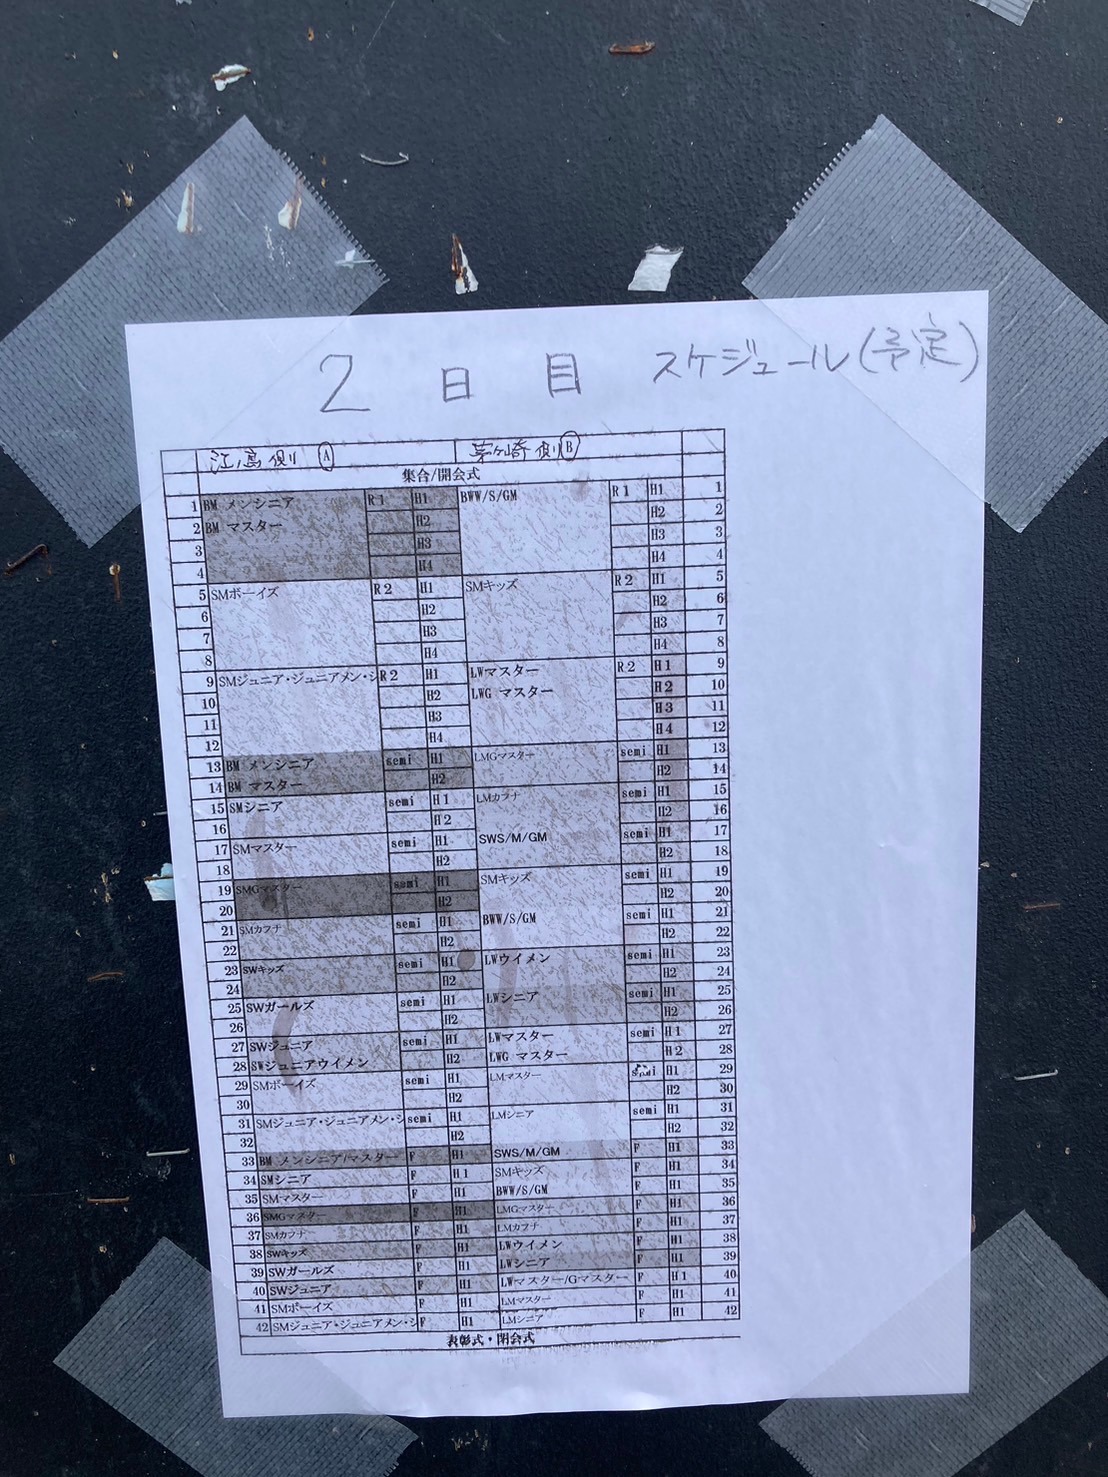 2 日 目 スケジュール(予定)
江ノ島側 A 茅ヶ崎側 B
集合/開会式
1 BM メンシニア R1 H1 BWW/S/GM R1 H1 1
2 BM マスター H2 H2 2
3 H3 H3 3
4 H4 H4 4
5 SMボーイズ R2 H1 SMキッズ R2 H1 5
6 H2 H2 6
7 H3 H3 7
8 H4 H4 8
9 SMジュニア・ジュニアメン・シ R2 H1 LWマスター R2 H1 9
10 H2 LWG マスター H2 10
11 H3 H3 11
12 H4 H4 12
13 BM メンシニア semi H1 LMGマスター semi H1 13
14 BM マスター H2 H2 14
15 SMシニア semi H1 LMカフナ semi H1 15
16 H2 H2 16
17 SMマスター semi H1 SWS/M/GM semi H1 17
18 H2 H2 18
19 SMGマスター semi H1 SMキッズ semi H1 19
20 H2 H2 20
21 SMカフナ semi H1 BWW/S/GM semi H1 21
22 H2 H2 22
23 SWキッズ semi H1 LWウイメン semi H1 23
24 H2 H2 24
25 SWガールズ semi H1 LWシニア semi H1 25
26 H2 H2 26
27 SWジュニア semi H1 LWマスター semi H1 27
28 SWジュニアウイメン H2 LWG マスター H2 28
29 SMボーイズ semi H1 LMマスター semi H1 29
30 H2 H2 30
31 SMジュニア・ジュニアメン・シ semi H1 LMシニア semi H1 31
32 H2 H2 32
33 BM メンシニア/マスター F H1 SWS/M/GM F H1 33
34 SMシニア F H1 SMキッズ F H1 34
35 SMマスター F H1 BWW/S/GM F H1 35
36 SMGマスター F H1 LMGマスター F H1 36
37 SMカフナ F H1 LMカフナ F H1 37
38 SWキッズ F H1 LWウイメン F H1 38
39 SWガールズ F H1 LWシニア F H1 39
40 SWジュニア F H1 LWマスター/Gマスター F H1 40
41 SMボーイズ F H1 LMマスター F H1 41
42 SMジュニア・ジュニアメン・シ F H1 LMシニア F H1 42
表彰式・閉会式